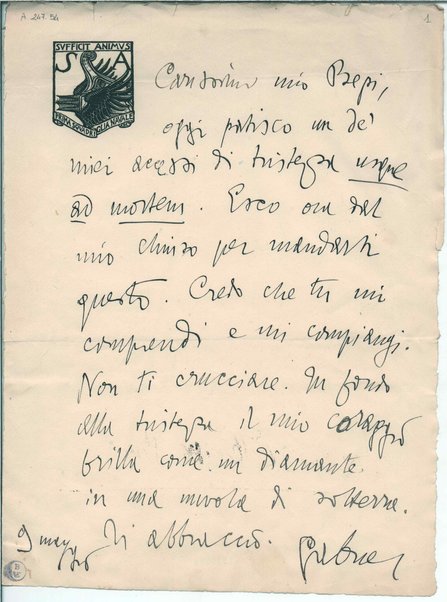 A 247.54
1
SVFFICIT ANIMVS
S A
PRIMA SQVADRIGLIA NAVALE
Carissimo mio Beppi,
oggi patisco un de'
miei accessi di tristezza usque
ad mortem. Esco ora dal
mio chiuso per mandarti
questo. Credo che tu mi
comprendi e mi compiangi.
Non ti crucciare. In fondo
alla tristezza il mio coraggio
brilla come un diamante
in una nuvola di sotterra.
Ti abbraccio.
9 maggio
Gabriel
B